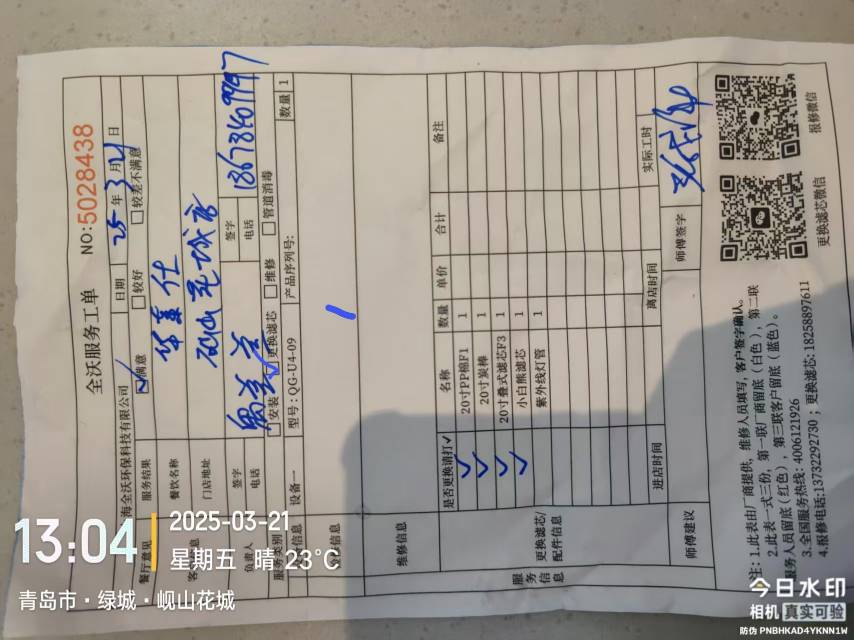 全沃服务工单
NO:5028438
海全沃环保科技有限公司
日期 25年3月21日
餐厅意见
服务结果
☑满意 □较好 □较差不满意
餐饮名称 华莱仕
门店地址 岘山花城店
负责人
签字
电话
签字
电话 18678409997
服务类别
□安装 ☑更换滤芯 □维修 □管道消毒
设备一 型号:QG-U4-09 产品序列号: 数量 1
维修信息
服务信息
更换滤芯/配件信息
是否更换请打✓ 名称 数量 单价 合计 备注
✓ 20寸PP棉F1 1
✓ 20寸炭棒 1
✓ 20寸叠式滤芯F3 1
✓ 小白熊滤芯 1
紫外线灯管 1
进店时间 离店时间 实际工时
师傅建议 师傅签字
注:1.此表由厂商提供,维修人员填写,客户签字确认。
2.此表一式三份,第一联厂商留底(白色),第二联
服务人员留底(红色),第三联客户留底(蓝色)。
3.全国服务热线:4006121926
4.报修电话:13732292730;更换滤芯:18258897611
更换滤芯微信
报修微信
13:04
2025-03-21
星期五 晴 23°C
青岛市·绿城·岘山花城
今日水印
相机 真实可验
防伪 PNBHKAD4YKNN1W